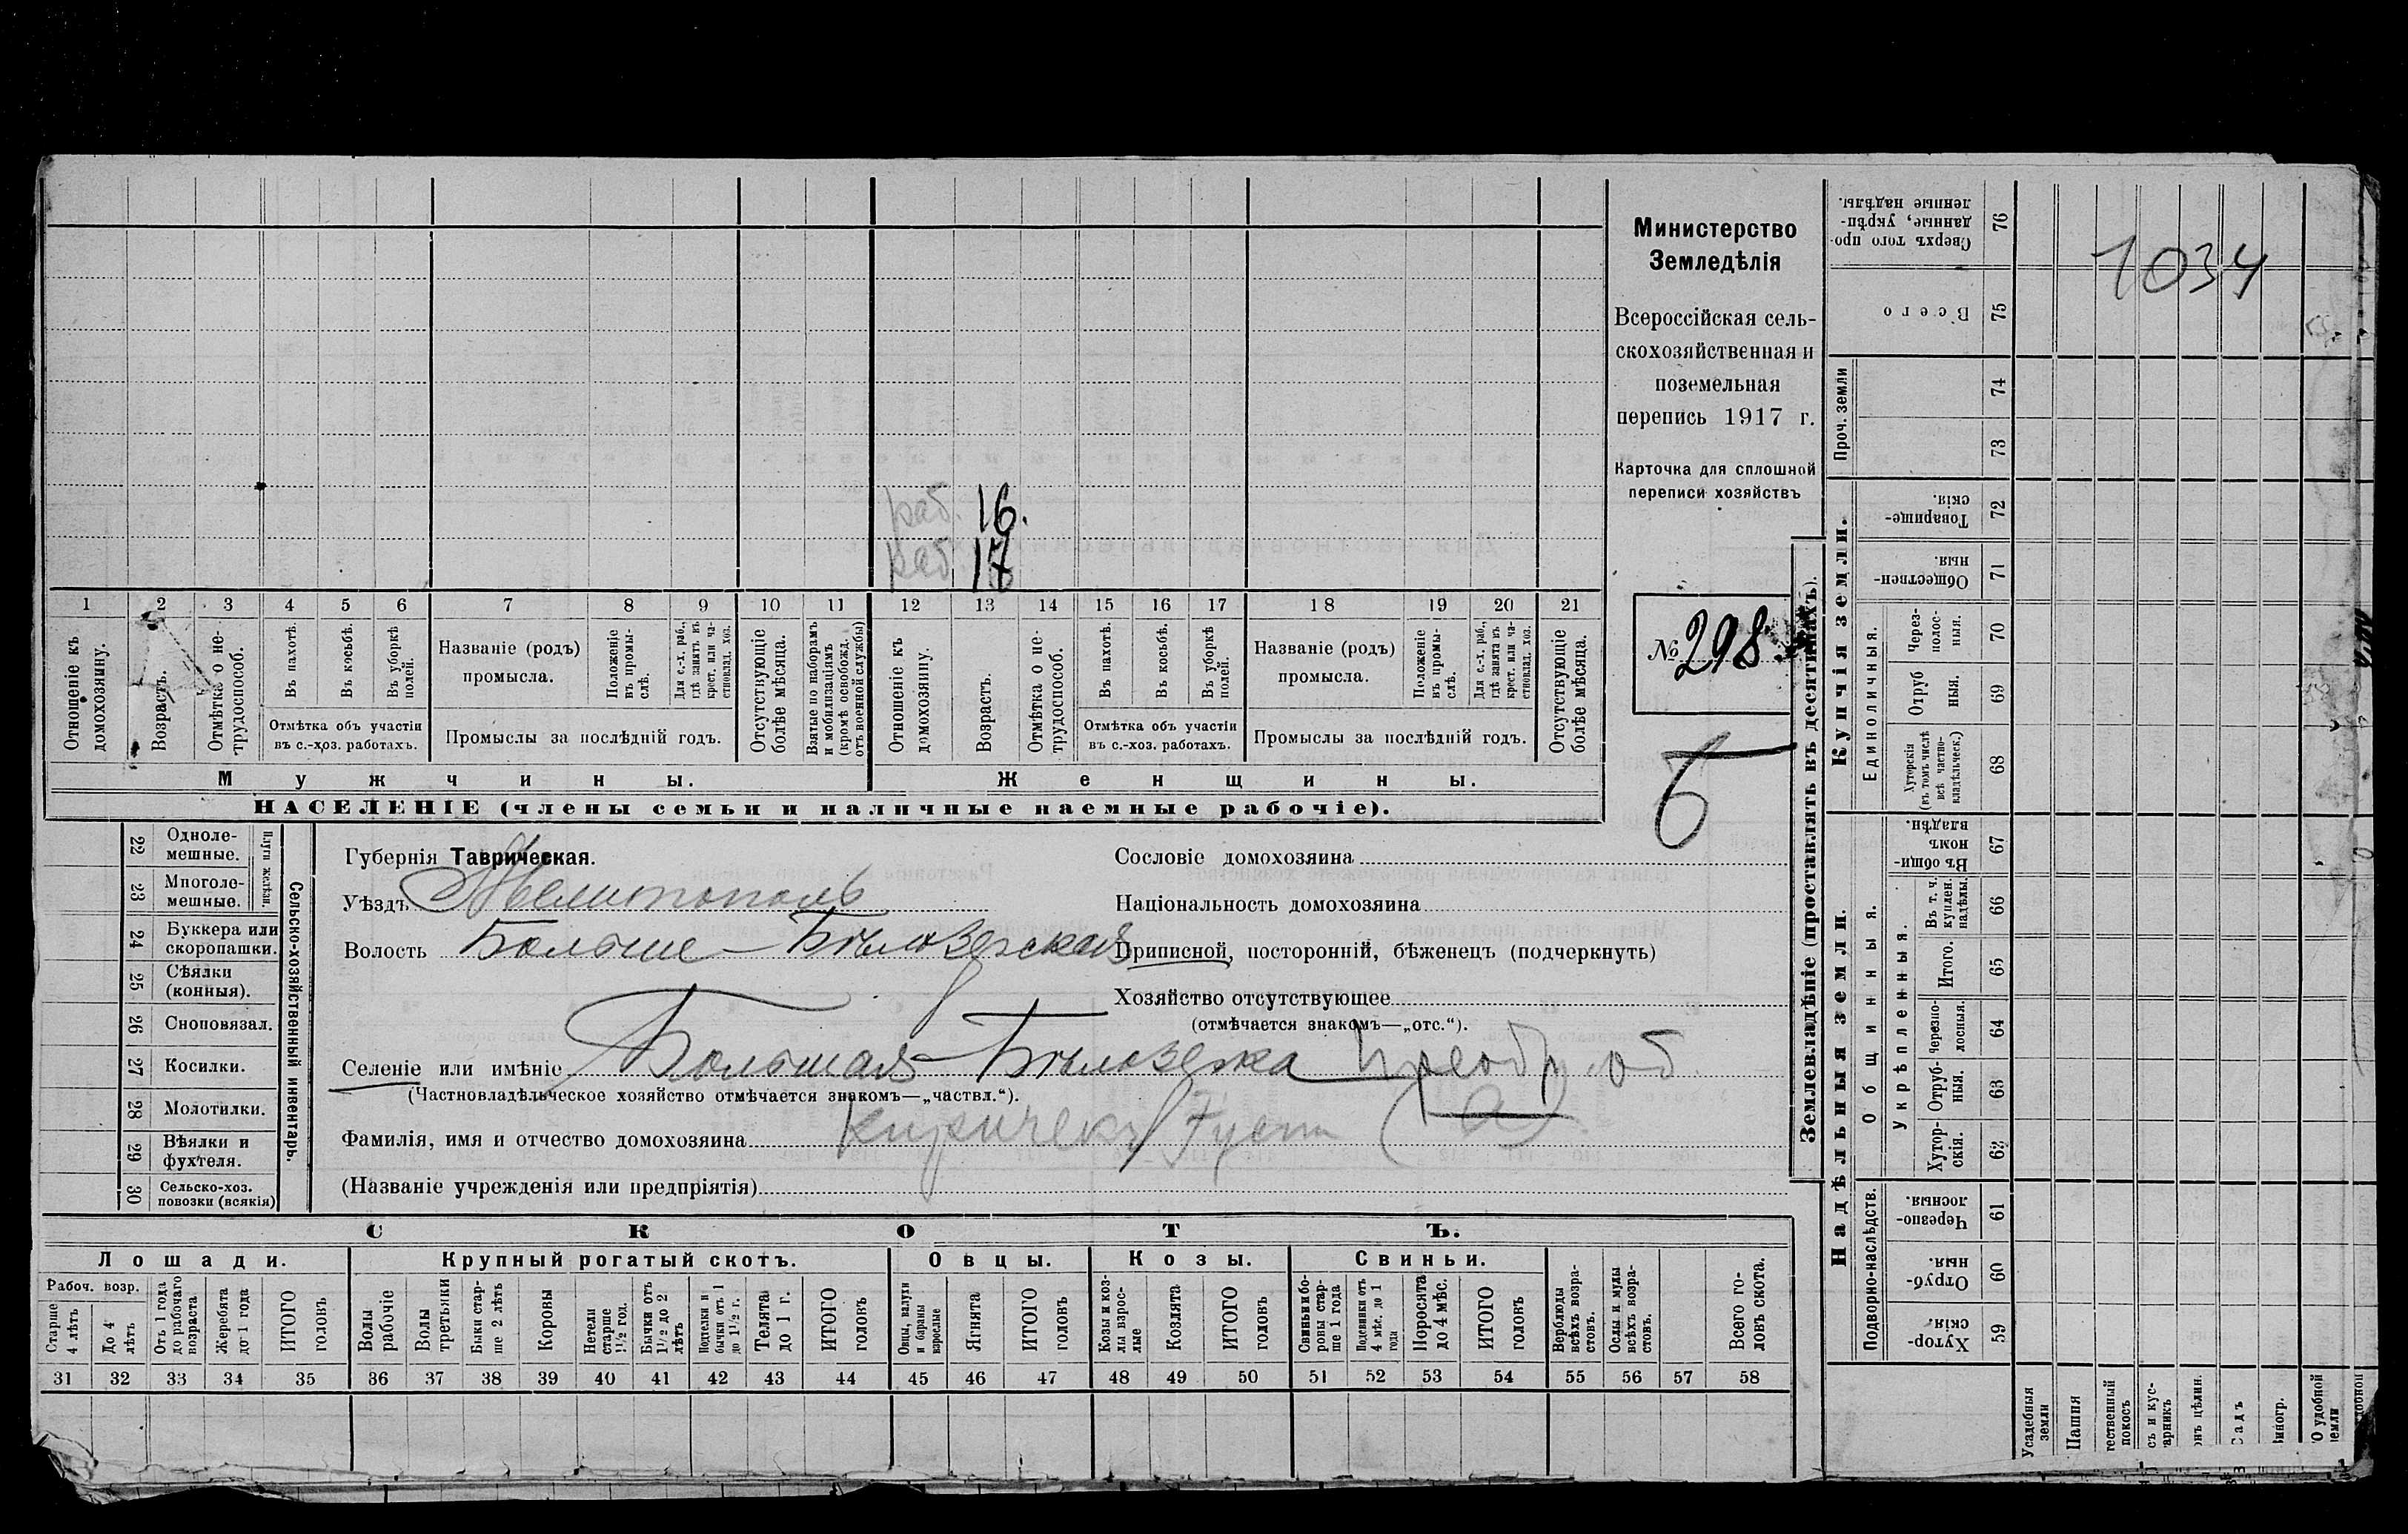 раб. 16.
раб 17
1 2 3 4 5 6 7 8 9 10 11 12 13 14 15 16 17 18 19 20 21
Отношеніе къ домохозяину.
Возрастъ.
Отмѣтка о не-трудоспособ.
Въ пахотѣ.
Въ косьбѣ.
Въ уборкѣ полей.
Отмѣтка объ участіи
въ с.-хоз. работахъ.
Названіе (родъ)
промысла.
Положеніе въ промы-слѣ.
Для с.-х. раб., гдѣ занятъ въ крест. или ча-стновлад. хоз.
Промыслы за послѣдній годъ.
Отсутствующіе болѣе мѣсяца.
Взятые по наборамъ и мобилизаціямъ (кромѣ освобожд. отъ военной службы)
Отношеніе къ домохозяину.
Возрастъ.
Отмѣтка о не-трудоспособ.
Въ пахотѣ.
Въ косьбѣ.
Въ уборкѣ полей.
Отмѣтка объ участіи
въ с.-хоз. работахъ.
Названіе (родъ)
промысла.
Положеніе въ промы-слѣ.
Для с.-х. раб., гдѣ занята въ крест. или ча-стновлад. хоз.
Промыслы за послѣдній годъ.
Отсутствующіе болѣе мѣсяца.
Мужчины.
Женщины.
НАСЕЛЕНІЕ (члены семьи и наличные наемные рабочіе).
Министерство
Земледѣлія
Всероссійская сель-
скохозяйственная и
поземельная
перепись 1917 г.
Карточка для сплошной
переписи хозяйствъ
№ 298.
Б
22 Одноле-
мешные.
23 Многоле-
мешные.
Плуги желѣзн.
24 Буккера или
скоропашки.
25 Сѣялки
(конныя).
26 Сноповязал.
27 Косилки.
28 Молотилки.
29 Вѣялки и
фухтеля.
30 Сельско-хоз.
повозки (всякія)
Сельско-хозяйственный инвентарь.
Губернія Таврическая.
Уѣздъ Мелитополь
Волость Больше-Бѣлозерская
Селеніе или имѣніе Большая-Бѣлозерка Преобр. об
(Частновладѣльческое хозяйство отмѣчается знакомъ—„частвл.“).
Фамилія, имя и отчество домохозяина (а)
(Названіе учрежденія или предпріятія)
Сословіе домохозяина
Національность домохозяина
Приписной, посторонній, бѣженецъ (подчеркнуть)
Хозяйство отсутствующее
(отмѣчается знакомъ—„отс.“).
СКОТЪ.
Лошади.
Крупный рогатый скотъ.
Овцы.
Козы.
Свиньи.
Рабоч. возр.
Старше 4 лѣтъ
До 4 лѣтъ
Отъ 1 года до рабочаго возраста
Жеребята до 1 года
ИТОГО головъ
Волы рабочіе
Волы третьяки
Быки стар-ше 2 лѣтъ
Коровы
Нетели старше 1½ год.
Бычки отъ 1½ до 2 лѣтъ
Подтелки и бычки отъ 1 до 1½ г.
Телята до 1 г.
ИТОГО головъ
Овцы, валухи и бараны взрослые
Ягнята
ИТОГО головъ
Козы и коз-лы взрос-лые
Козлята
ИТОГО головъ
Свиньи и бо-ровы стар-ше 1 года
Подсвинки отъ 4 мѣс. до 1 года
Поросята до 4 мѣс.
ИТОГО головъ
Верблюды всѣхъ возра-стовъ.
Ослы и мулы всѣхъ возра-стовъ.
Всего го-ловъ скота.
31 32 33 34 35 36 37 38 39 40 41 42 43 44 45 46 47 48 49 50 51 52 53 54 55 56 57 58
Землевладѣніе (проставлять въ десятинахъ).
1034
Сверхъ того про-данные, укрѣп-ленные надѣлы. 76
Всего 75
Проч. земли
74
73
Купчія земли.
Товарище-скія. 72
Обществен-ныя. 71
Единоличныя.
Через-полос-ныя. 70
Отруб ныя. 69
Хуторскія (въ томъ числѣ всѣ частно-владѣльческ.) 68
Надѣльныя земли.
Общинныя.
Въ общи-номъ владѣн. 67
Укрѣпленныя.
Въ т. ч. куплен. надѣлы. 66
Итого. 65
Черезпо-лосныя. 64
Отруб-ныя. 63
Хутор-скія. 62
Подворно-наслѣдств.
Черезпо-лосныя. 61
Отруб-ныя. 60
Хутор-скія. 59
Усадебныя земли
Пашня
тественный покосъ
съ и кус-арникъ
онъ цѣлин.
Садъ
Виногр.
О удобной земли